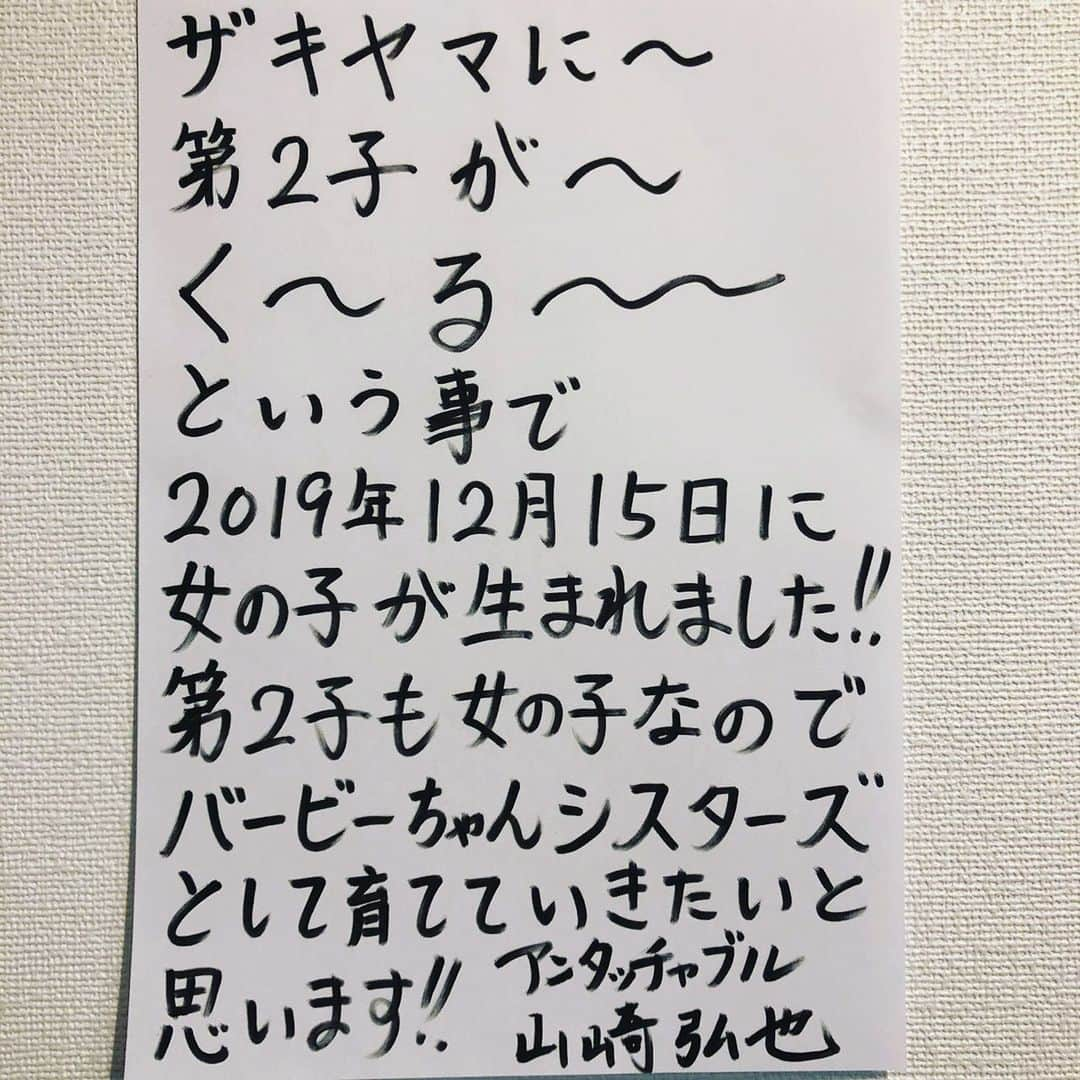 ザキヤマに〜
第2子が〜
く〜る〜〜
という事で
2019年12月15日に
女の子が生まれました!!
第2子も女の子なので
バービーちゃんシスターズ
として育てていきたいと
思います!!
アンタッチャブル
山崎弘也